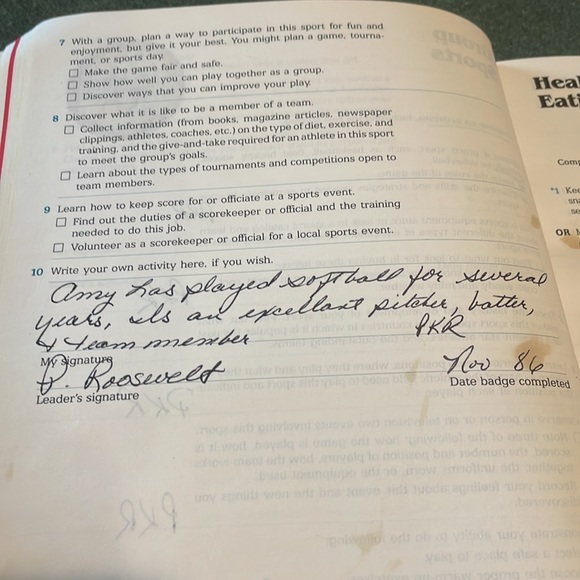 7 With a group, plan a way to participate in this sport for fun and
enjoyment, but give it your best. You might plan a game, tourna-
ment, or sports day
☐ Make the game fair and safe.
☐ Show how well you can play together as a group.
☐ Discover ways that you can improve your play.
8 Discover what it is like to be a member of a team.
☐ Collect information (from books, magazine articles, newspaper
clippings, athletes, coaches, etc.) on the type of diet, exercise, and
training, and the give-and-take required for an athlete in this sport
to meet the group's goals.
☐ Learn about the types of tournaments and competitions open to
team members.
9 Learn how to keep score for or officiate at a sports event.
☐ Find out the duties of a scorekeeper or official and the training
needed to do this job.
☐ Volunteer as a scorekeeper or official for a local sports event.
10 Write your own activity here, if you wish.
Amy has played softball for several
years, is an excellant pitcher, batter,
& team member PKR
My signature
Roosevelt Nov 86
Leader's signature Date badge completed
Heal
Eati
Comp
*1 Kee
sna
OR